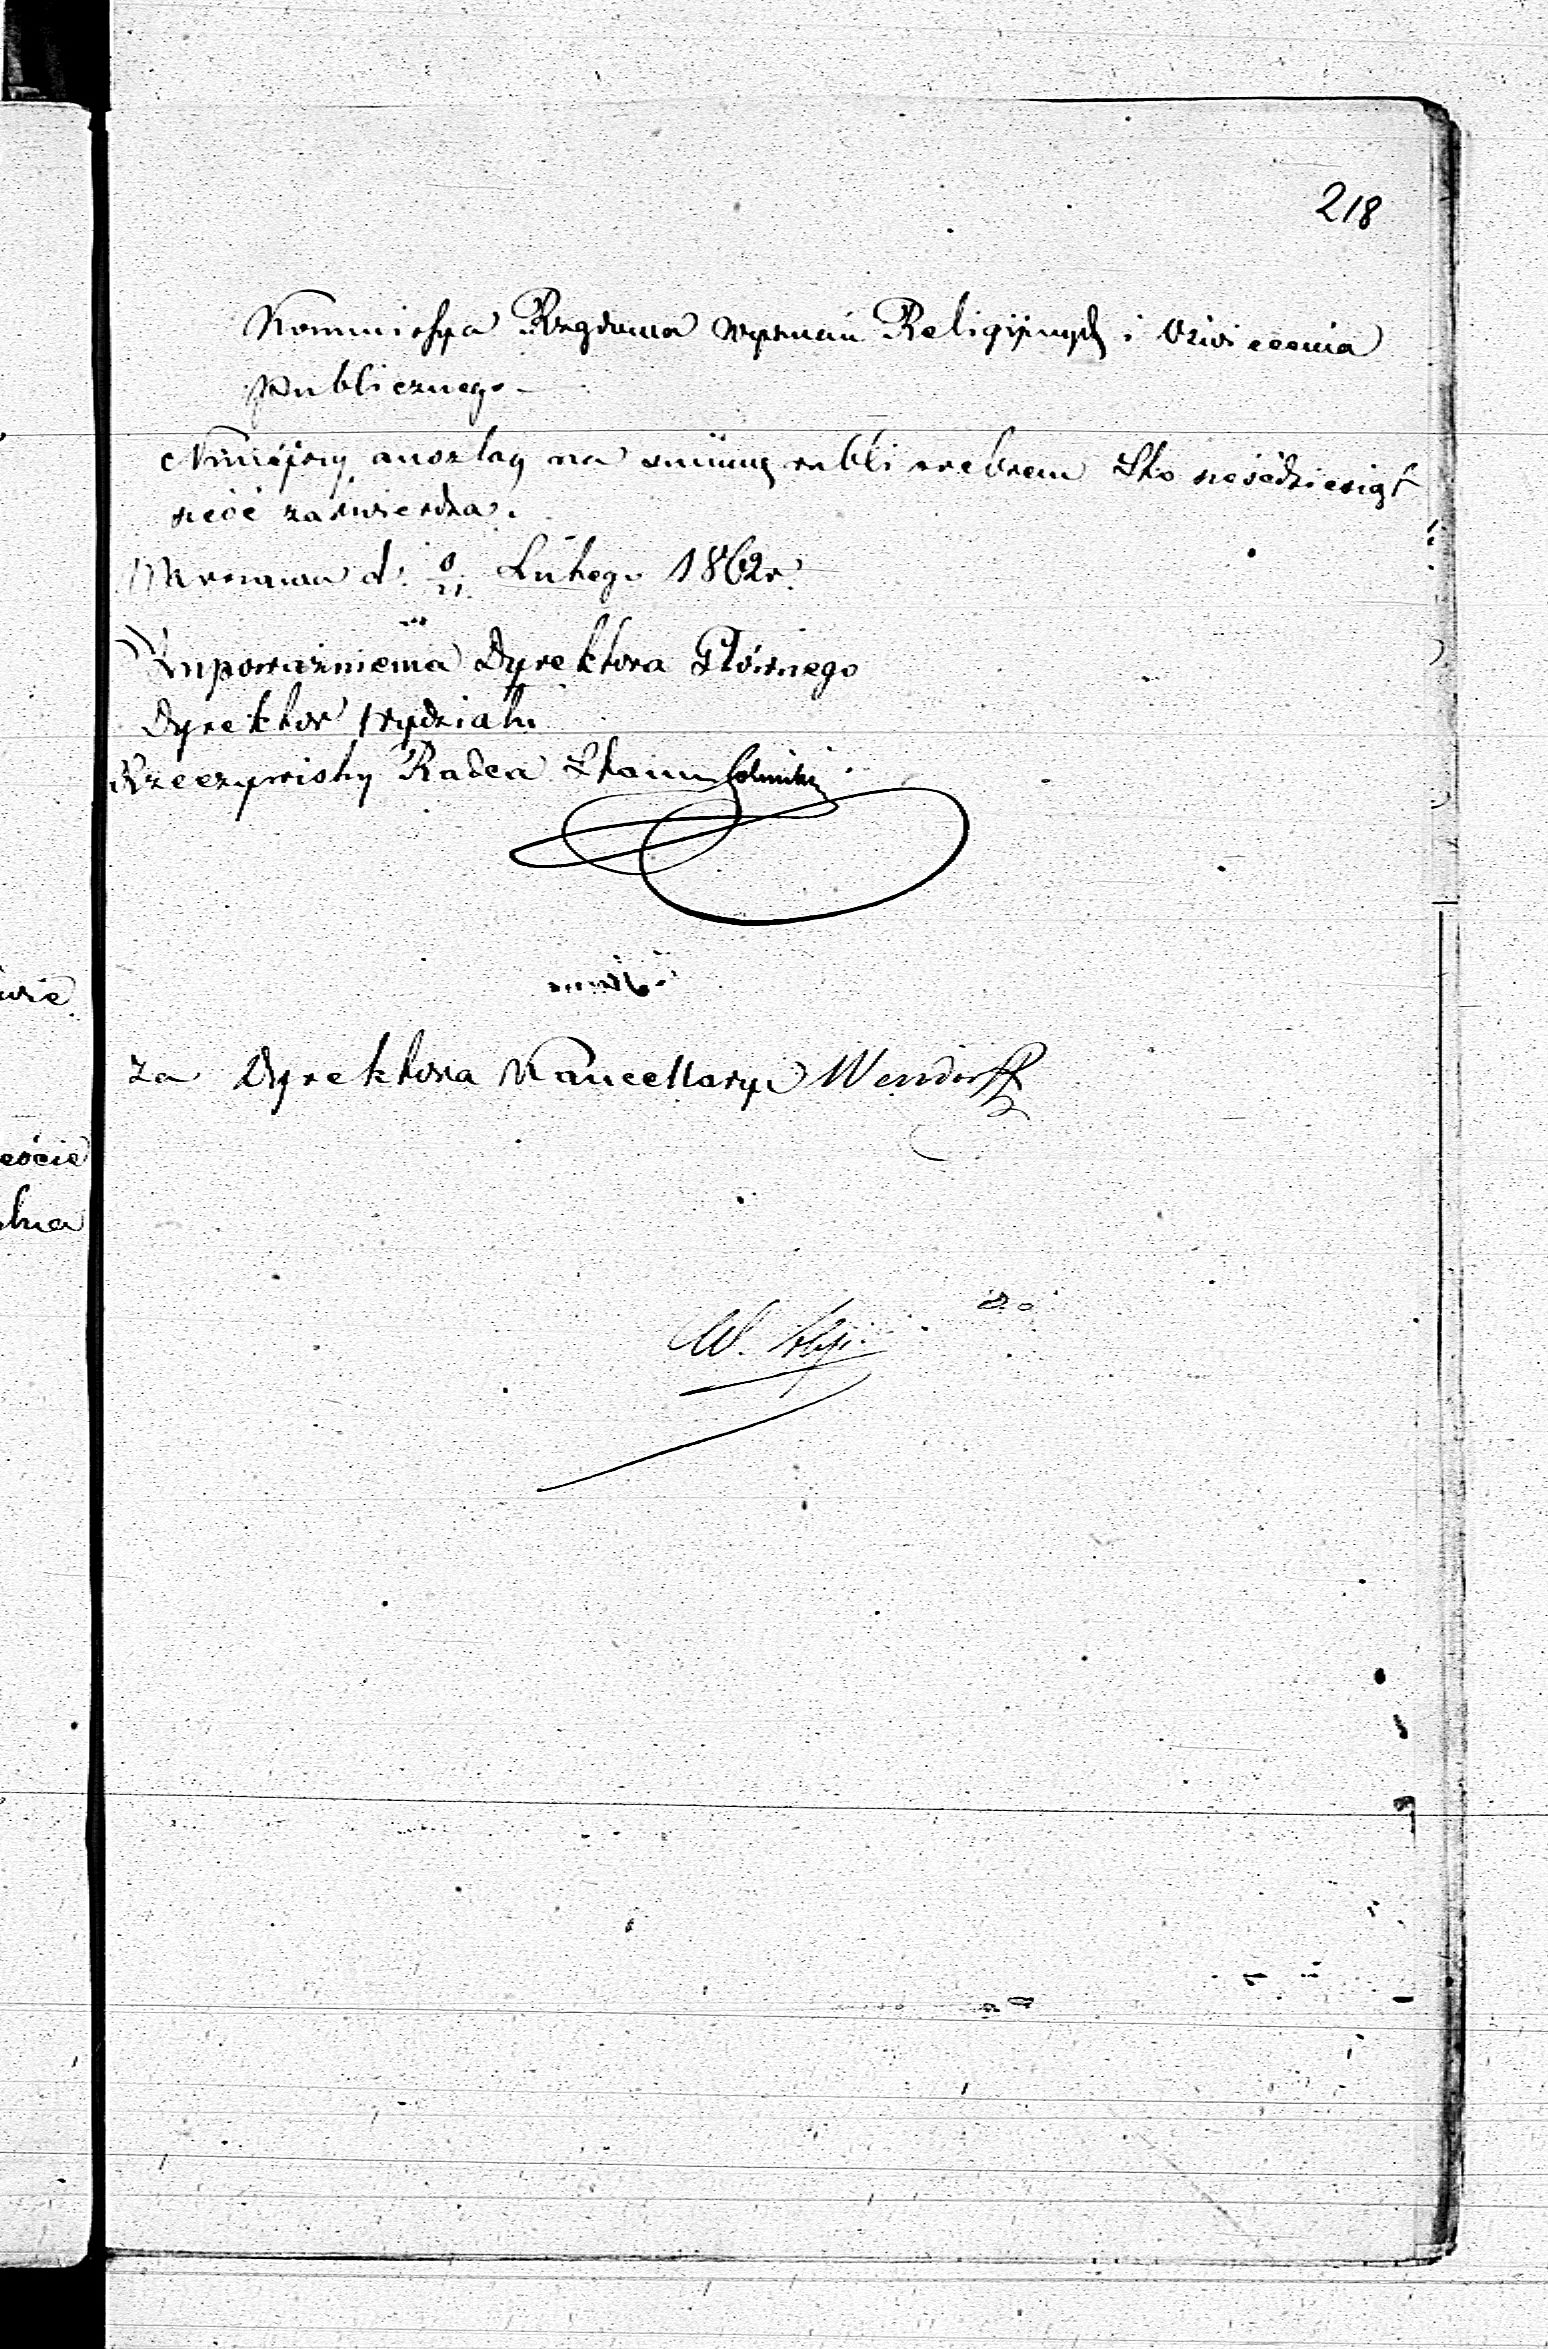 218
Kommissya Rządowa wyznań Religijnych i Oświecenia
Publicznego
Niniejszy anszlag na summę rubli srebrem Sto sześćdziesiąt
sześć zatwierdza.
Warszawa d. 9/21 Lutego 1862 r.
Z upoważnienia Dyrektora Głównego
Dyrektor Wydziału
Rzeczywisty Radca Stanu
Za Dyrektora Kancellaryi Wendorff